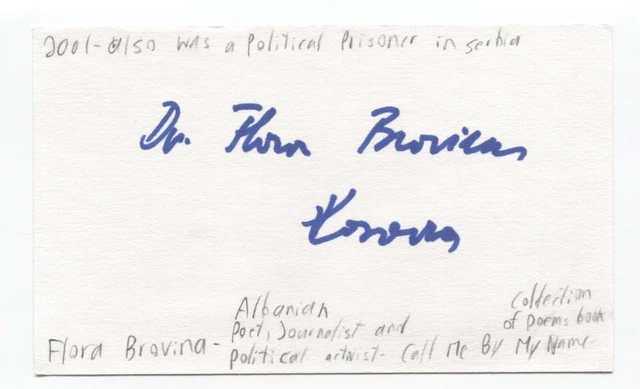 2001-also was a Political Prisoner in serbia
Dr. Flora Brovina
Kosova
Albanian
Poet, Journalist and
Flora Brovina- political activist- Call Me By My Name-
Collection
of poems book